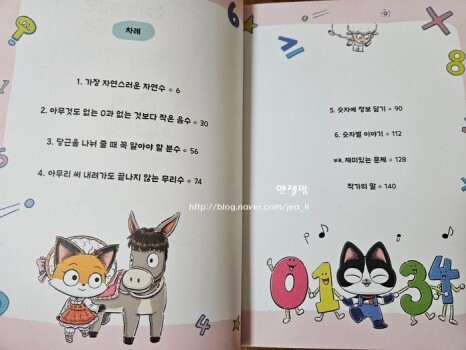 차례
1. 가장 자연스러운 자연수 = 6
2. 아무것도 없는 0과 없는 것보다 작은 음수 = 30
3. 당근을 나눠 줄 때 꼭 알아야 할 분수 = 56
4. 아무리 써 내려가도 끝나지 않는 무리수 = 74
6
4
5. 숫자에 정보 담기 = 90
6. 숫자별 이야기 = 112
부록. 재미있는 문제 = 128
작가의 말 = 140
8
앤젤맘
http://blog.naver.com/jea_li
0 1 3 4